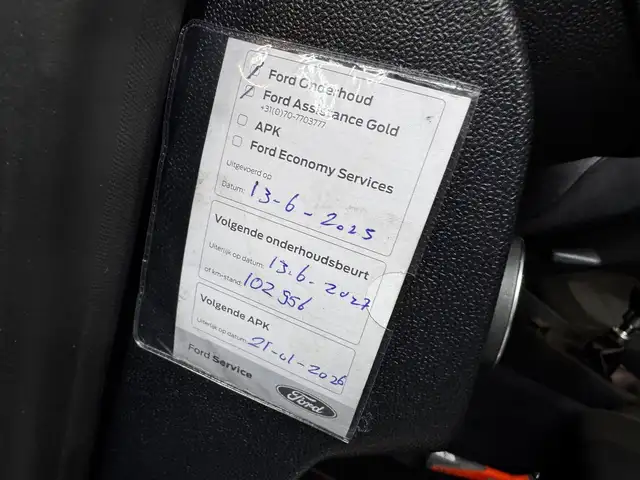 Ford Onderhoud
Ford Assistance Gold
+31(0)70-7703777
APK
Ford Economy Services
Uitgevoerd op
Datum: 13-6-2025
Volgende onderhoudsbeurt
Uiterlijk op datum: 13.6.-2027
of km-stand: 102956
Volgende APK
Uiterlijk op datum: 21-01-2026
Ford Service
Ford